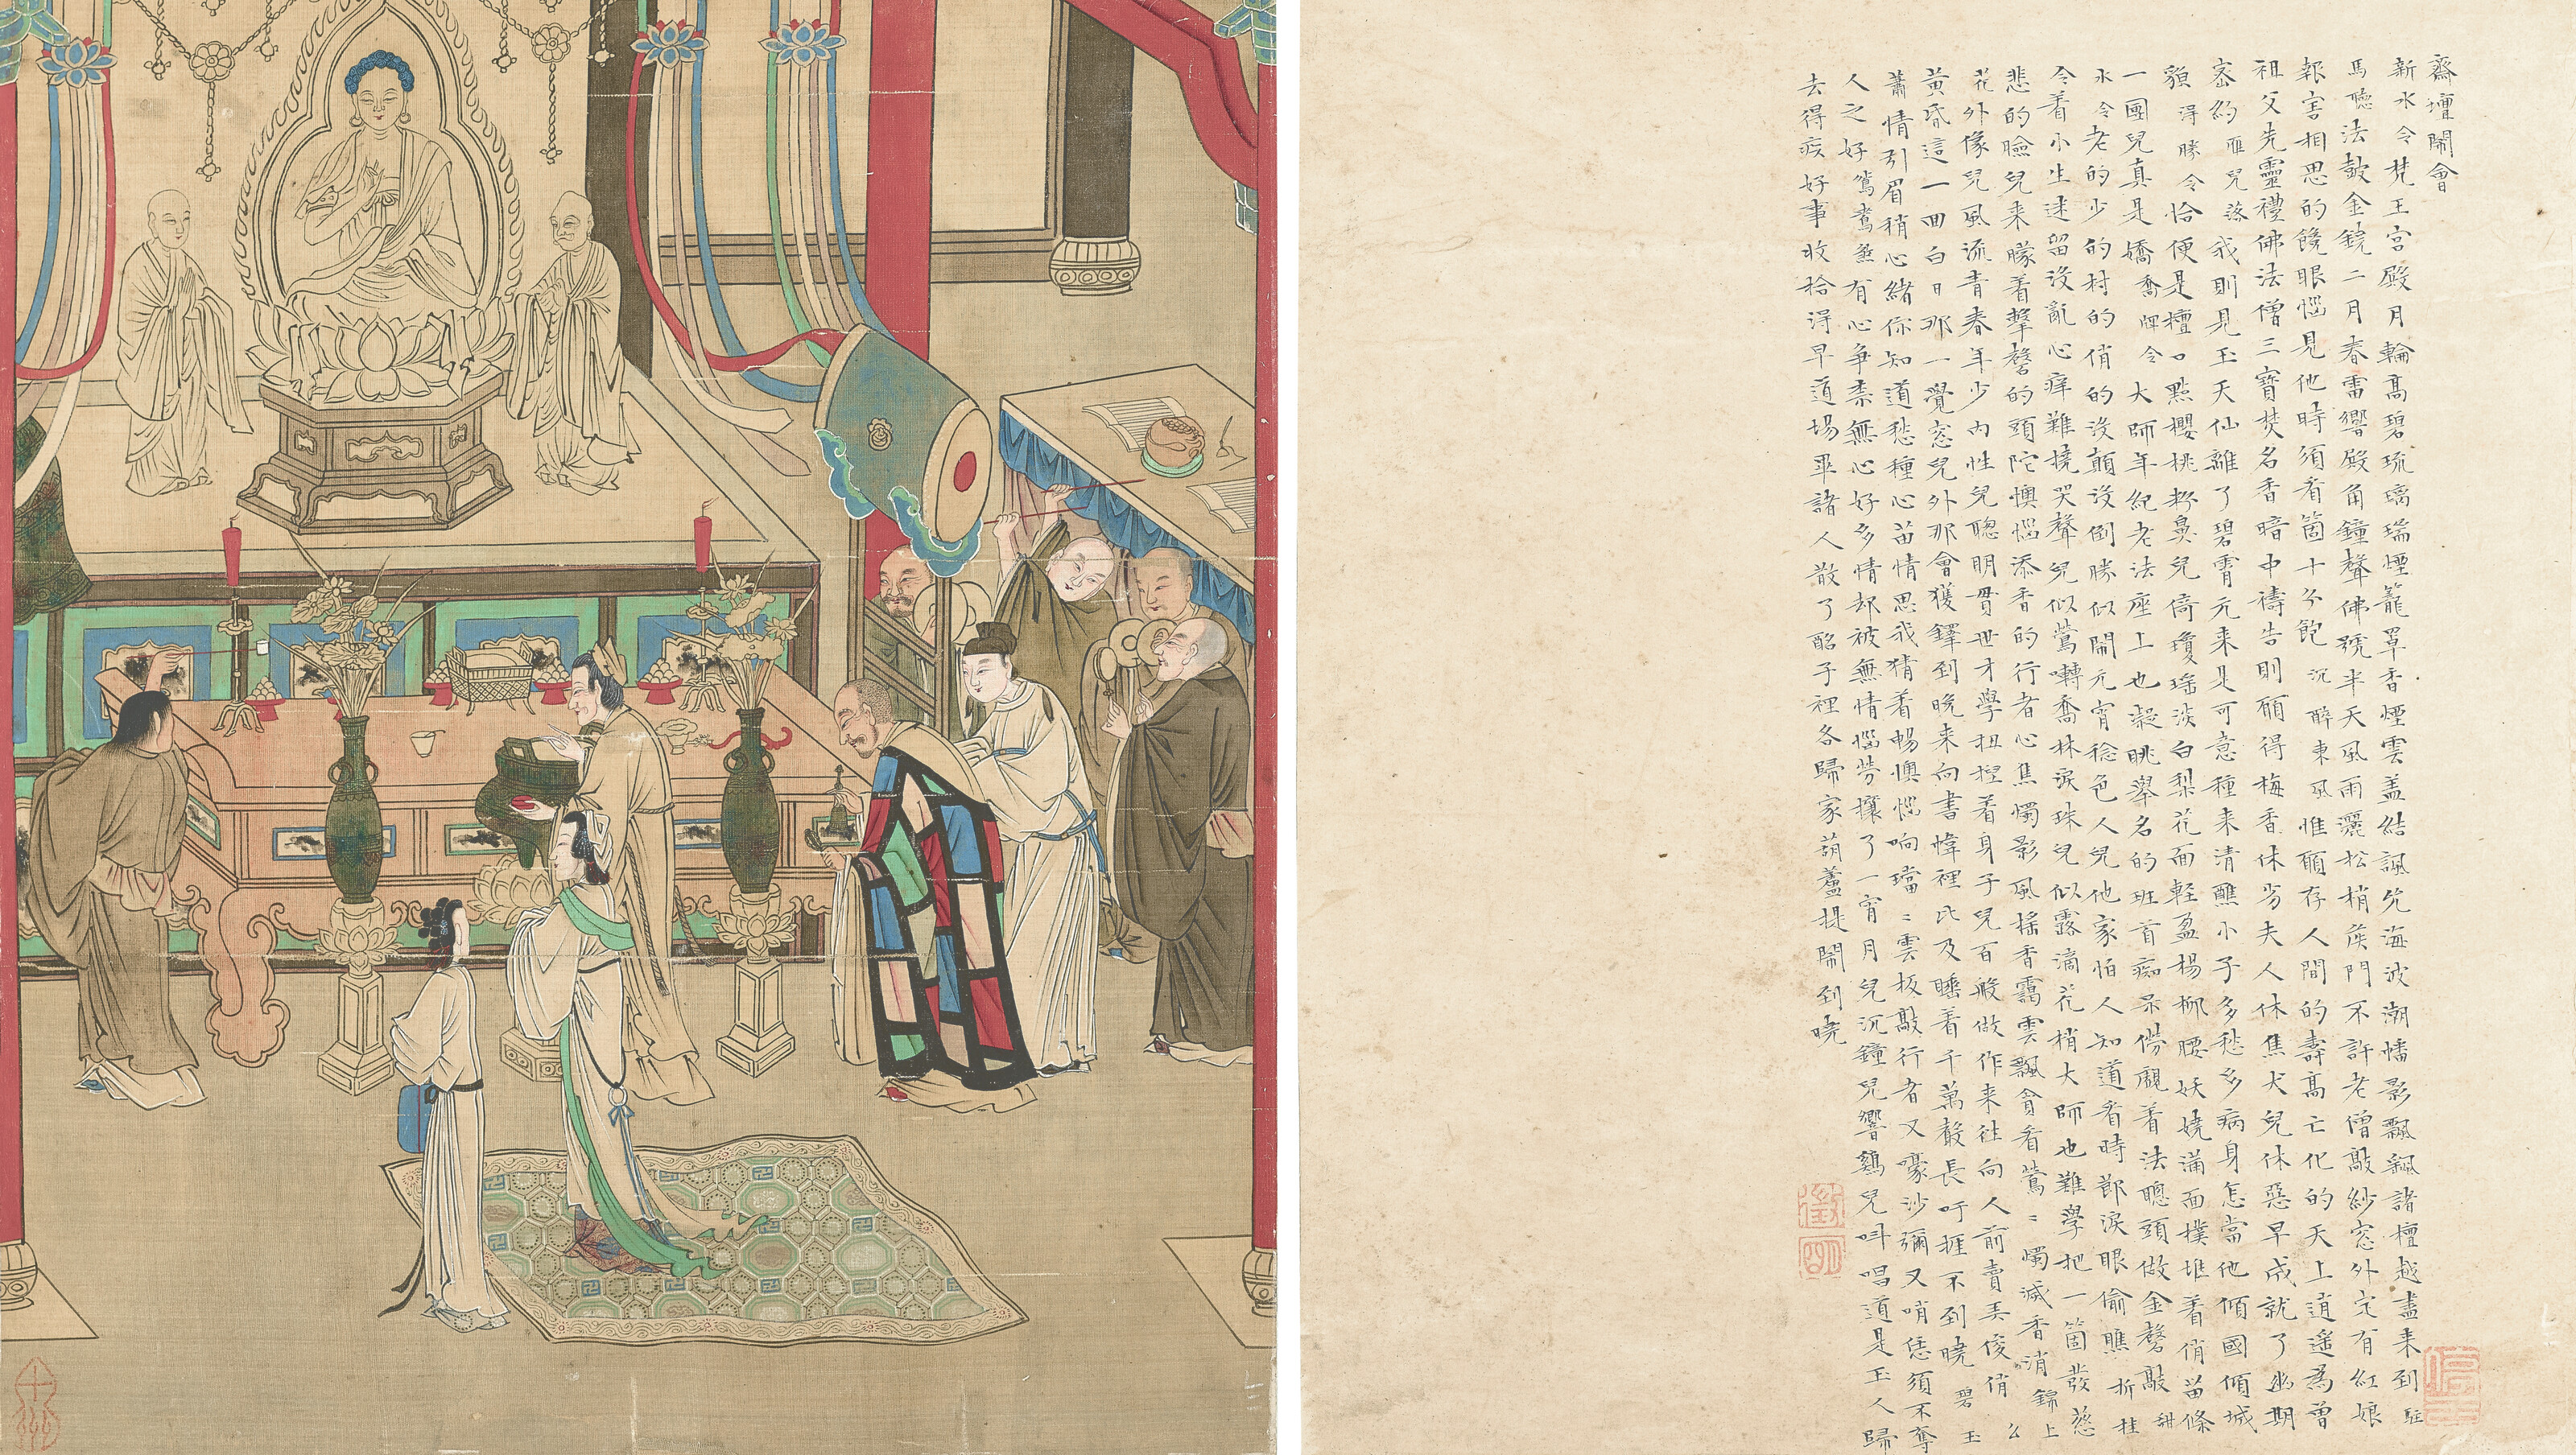 齋壇鬧會
新水令梵王宮殿月輪高碧琉璃瑞煙籠罩香煙雲盖結諷咒海波潮幡影飄飖諸檀越盡来到駐
馬聽法鼓金鐃二月春雷響殿角鐘聲佛號半天風雨灑松梢矦門不許老僧敲紗窓外定有紅娘
報害相思的饞眼惱見他時須看箇十分飽沉醉東風惟願存人間的壽高亡化的天上逍遙為曽
祖父先靈禮佛法僧三寶焚名香暗中禱告則願得梅香休劣夫人休焦犬兒休惡早成就了幽期
宻約雁兒落我則見玉天仙離了碧霄元来是可意種来清醮小子多愁多病身怎當他傾國傾城
貌得勝令恰便是檀口點櫻桃粉鼻兒倚瓊瑤淡白梨花面輕盈楊柳腰妖嬈滿面撲堆着俏苗條
一團兒真是嬌喬牌令大師年紀老法座上也凝眺舉名的班首痴呆僗覷着法聰頭做金磬敲甜
水令老的少的村的俏的沒顛沒倒勝似鬧元宵稔色人兒他家怕人知道看時節淚眼偷瞧折桂
令着小生迷留沒亂心痒難撓哭聲兒似鶯囀喬林淚珠兒似露滴花梢大師也難學把一箇發慈
悲的臉兒来朦着擊磬的頭陀懊惱添香的行者心焦燭影風搖香靄雲飄貪看鶯〻燭滅香消錦上
花外像兒風流青春年少内性兒聰明貫世才學扭揑着身子兒百般做作来往向人前賣弄俊俏么
黃昏這一囬白日那一覺窓兒外那會獲鐸到晚来向書幃裡比及睡着千萬般長吁捱不到曉碧玉
蕭情引眉稍心緒你知道愁種心苗情思我猜着暢懊惱响璫〻雲板敲行者又嚎沙彌又哨恁須不奪
人之好鴛鴦煞有心爭柰無心好多情却被無情惱勞攘了一宵月兒沉鐘兒響鷄兒呌唱道是玉人歸
去得疾好事收拾得早道場畢諸人散了酩子裡各歸家葫蘆提鬧到曉
徵
明
十